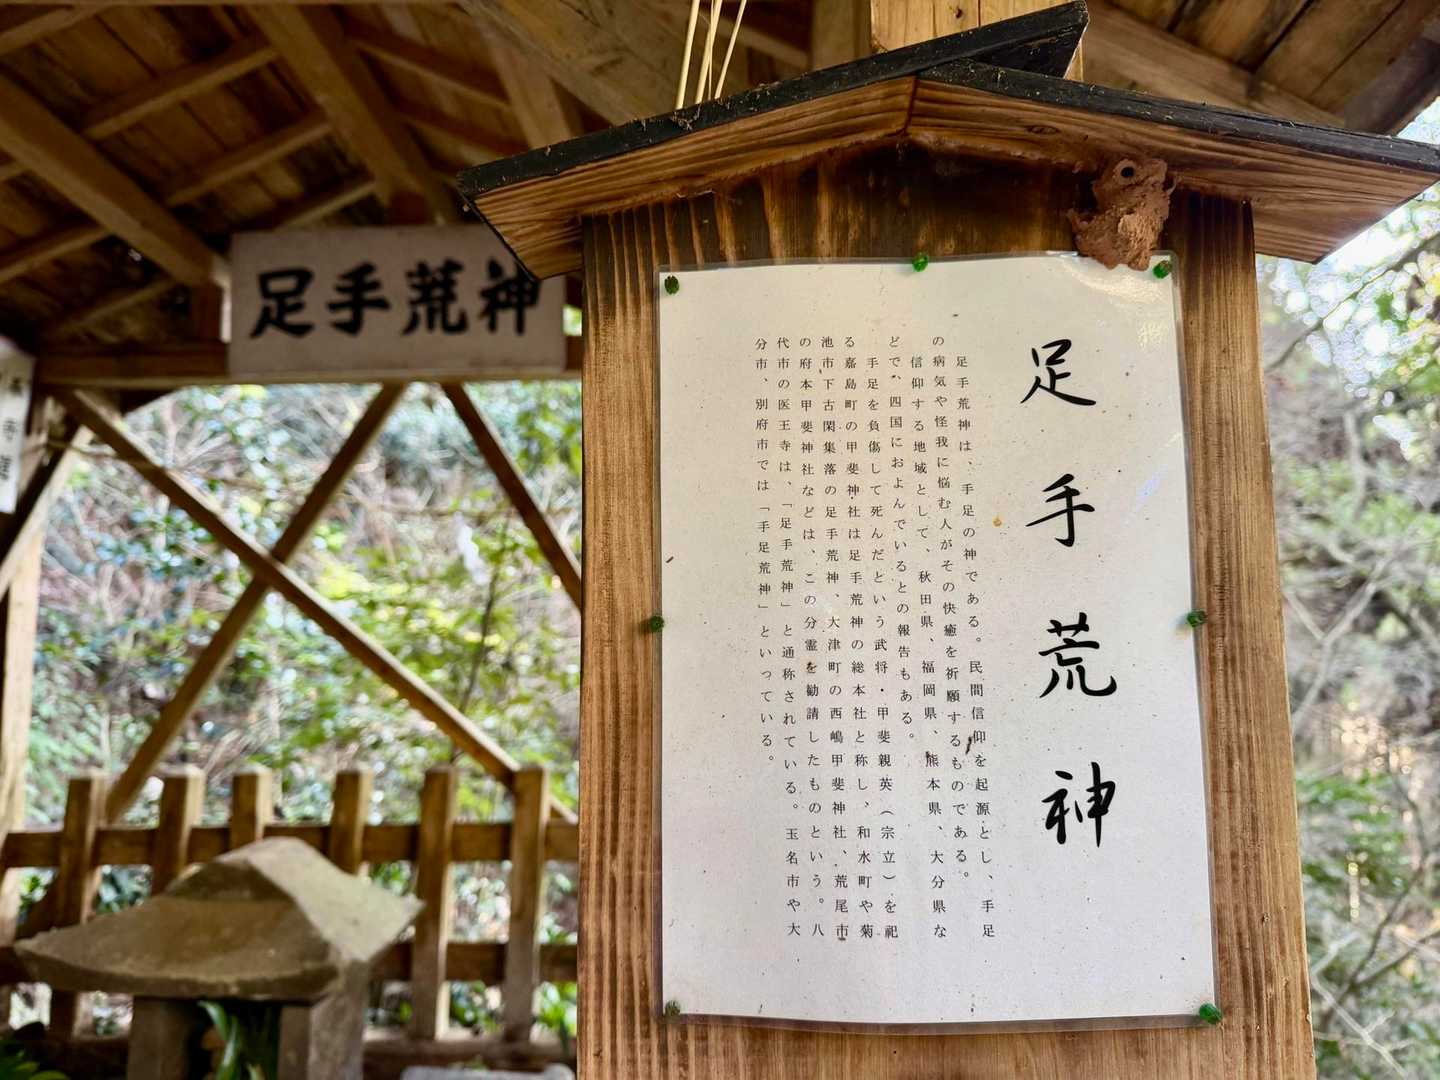 足手荒神
足手荒神
足手荒神は、手足の神である。民間信仰を起源とし、手足
の病気や怪我に悩む人がその快癒を祈願するものである。
信仰する地域として、秋田県、福岡県、熊本県、大分県な
どで、四国におよんでいるとの報告もある。
手足を負傷して死んだという武将・甲斐親英（宗立）を祀
る嘉島町の甲斐神社は足手荒神の総本社と称し、和水町や菊
池市下古閑集落の足手荒神、大津町の西嶋甲斐神社、荒尾市
の府本甲斐神社などは、この分霊を勧請したものという。八
代市の医王寺は、「足手荒神」と通称されている。玉名市や大
分市、別府市では「手足荒神」といっている。